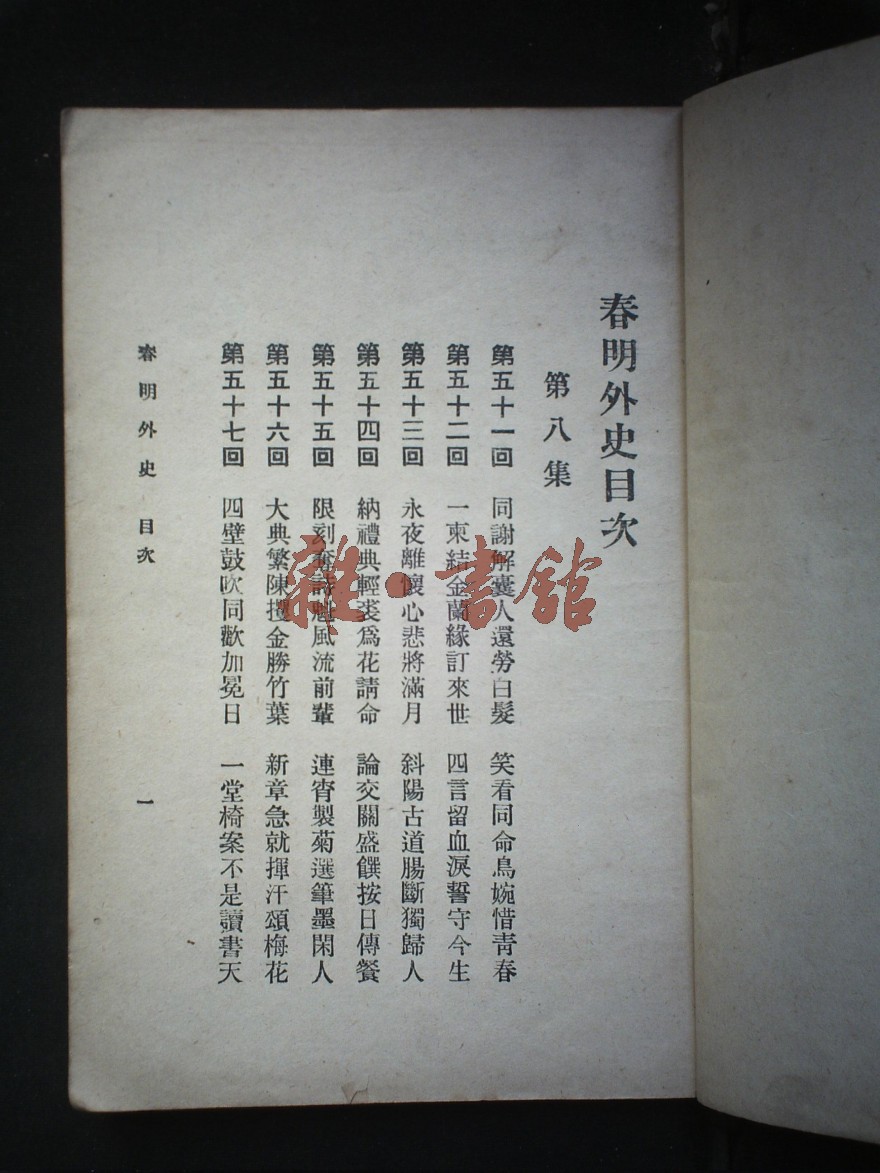 春明外史目次
第八集
第五十一回 同謝解囊人還勞白髮 笑看同命鳥婉惜青春
第五十二回 一柬結金蘭緣訂來世 四言留血淚誓守今生
第五十三回 永夜離懷心悲將滿月 斜陽古道腸斷獨歸人
第五十四回 納禮典輕裘爲花請命 論交關盛饌按日傳餐
第五十五回 限刻奪詩魁風流前輩 連宵製菊選筆墨閑人
第五十六回 大典繁陳攫金勝竹葉 新章急就揮汗頌梅花
第五十七回 四壁鼓吹同歡加冕日 一堂椅案不是讀書天
春明外史 目次 一
雜·書舘